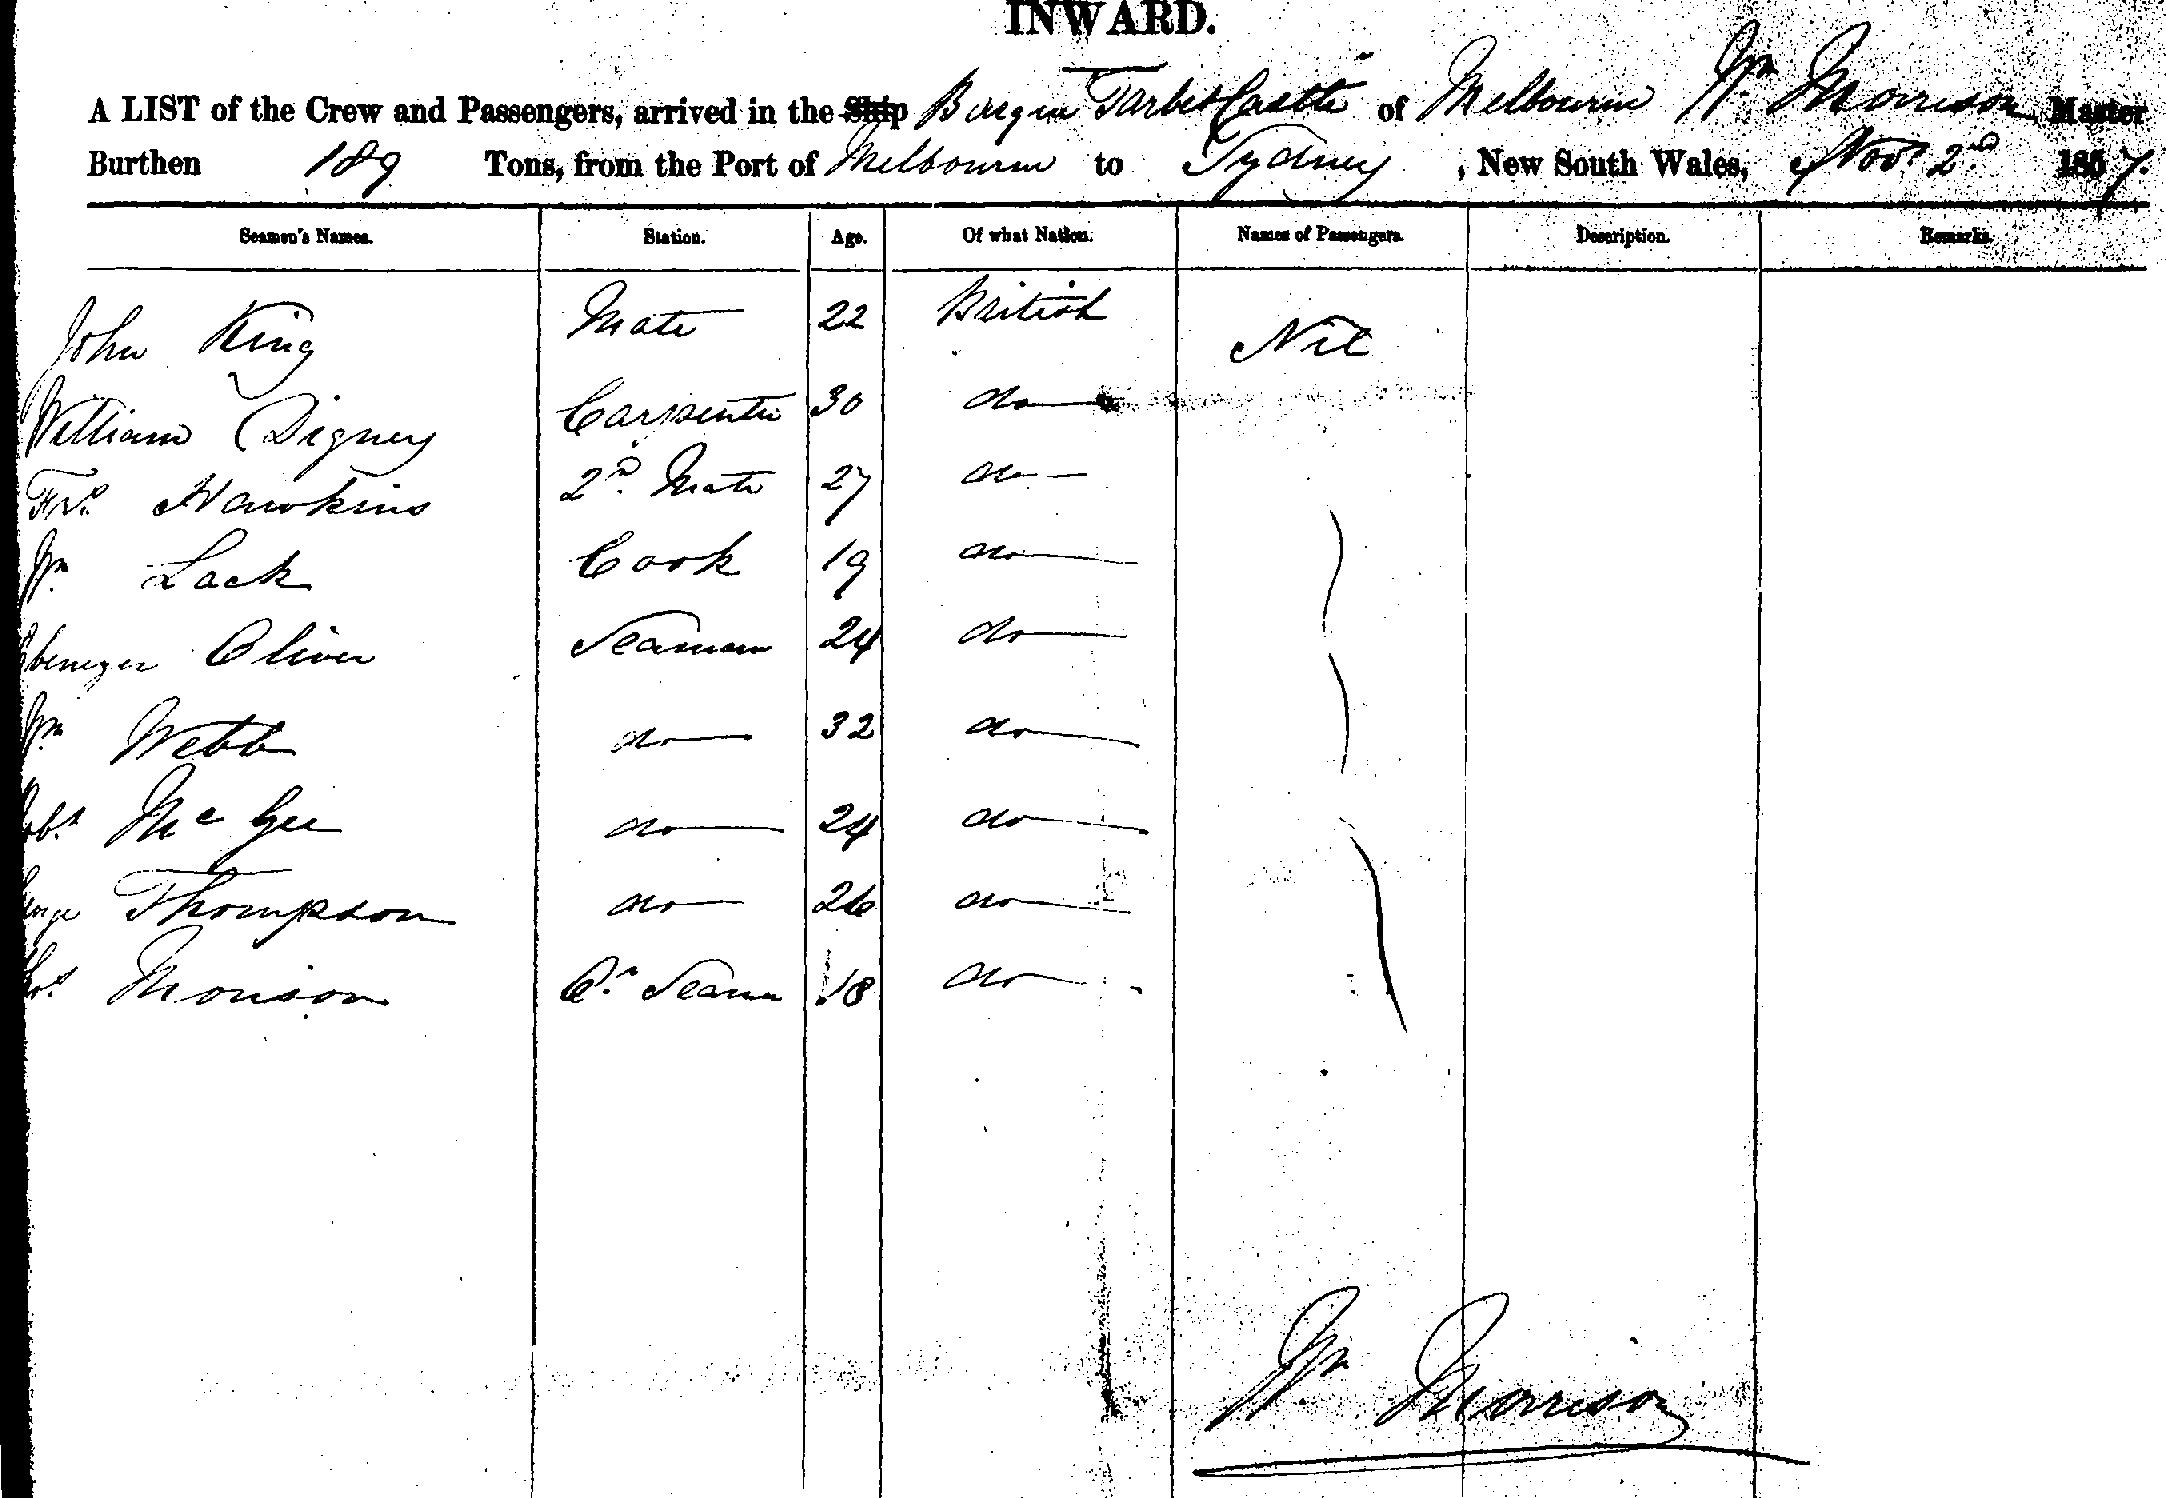 INWARD.
A LIST of the Crew and Passengers, arrived in the Ship Tarbet Castle of Melbourne Wm Morrison Master
Burthen 189 Tons, from the Port of Melbourne to Sydney, New South Wales, Novr 2nd 1857.
Seamen's Names. Station. Age. Of what Nation. Names of Passengers. Description. Remarks.
John King Mate 22 British Nil
William Digney Carpenter 30 do
Frs. Hawkins 2nd Mate 27 do
Wm Lack Cook 19 do
Ebenezer Oliver Seaman 24 do
Wm Webb do 32 do
Robt McGee do 24 do
George Thompson do 26 do
Morison Seaman 18 do
Wm Morrison